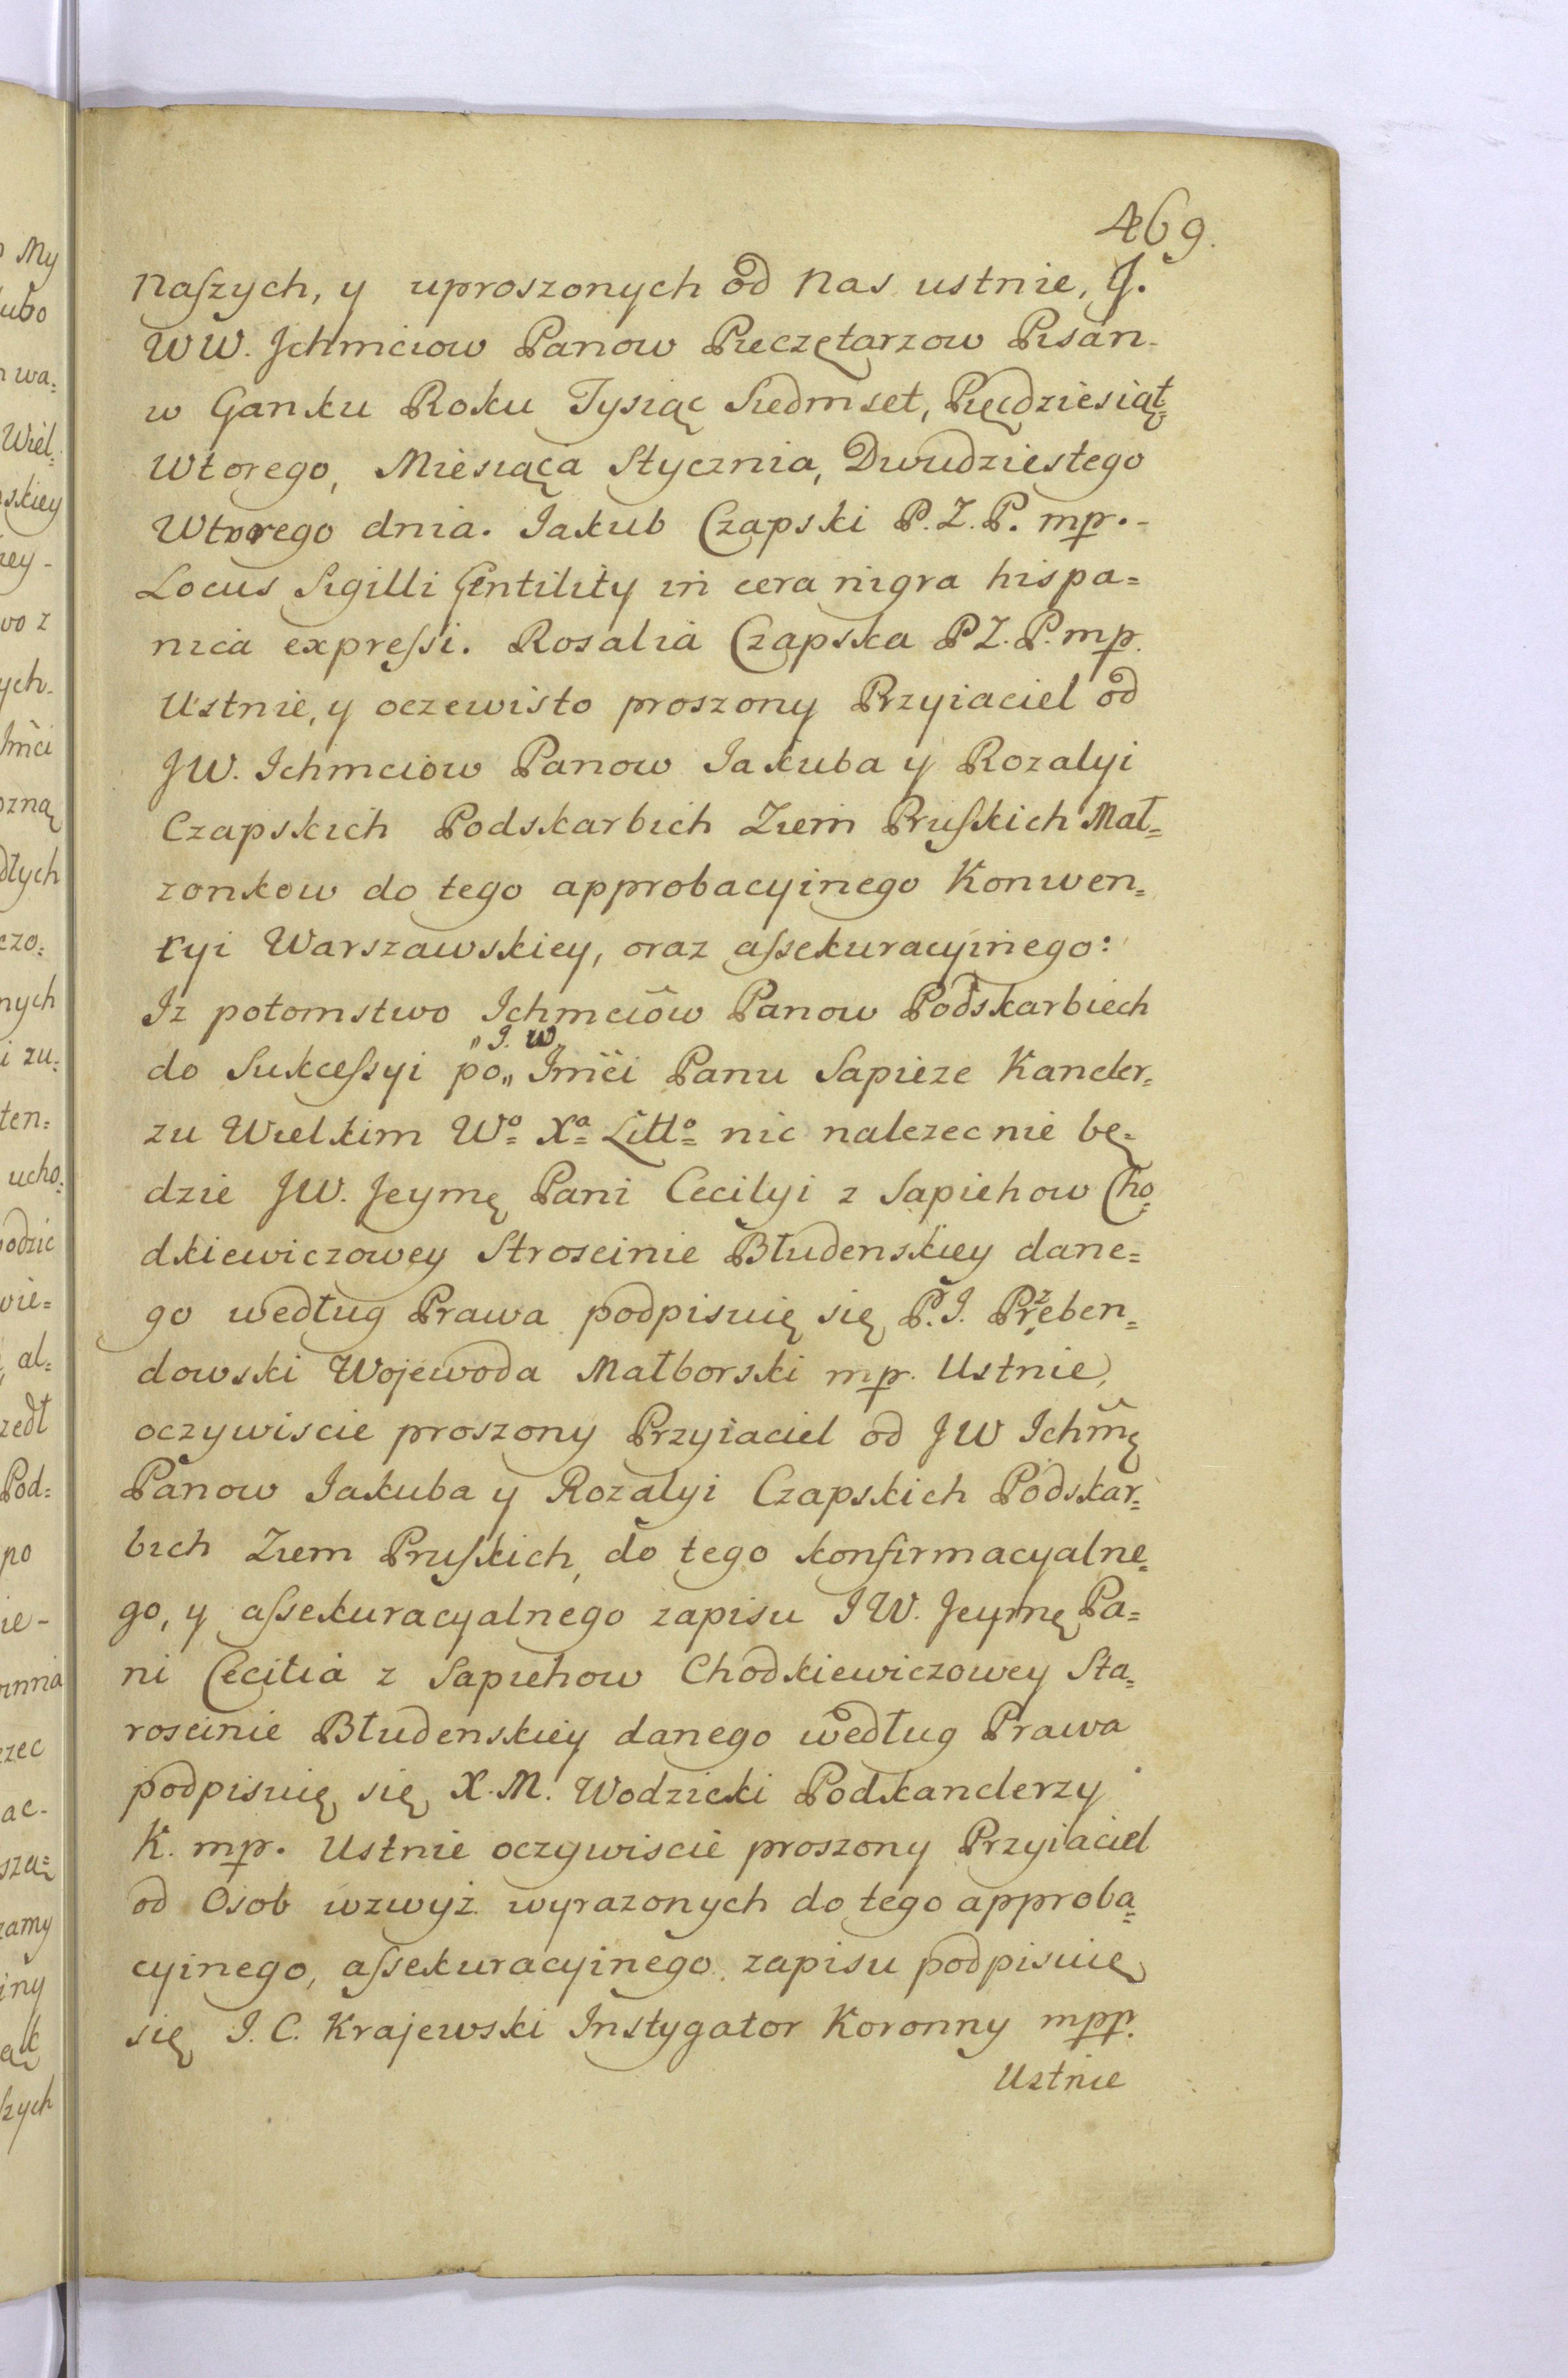 469.
naſzych, y uproszonych od nas ustnie, J.
WW. Jchmciow Panow Pieczętarzow Pisan-
w Ganku Roku Tysiąc Siedmset, Pięcdziesiąt=
Wtorego, Miesiąca Stycznia, Dwudziestego
Wtorego dnia. Iakub Czapski P. Z. P. mp. -
Locus Sigilli Gentility in cera nigra hispa=
nica expreſsi. Rosalia Czapska P Z. P. mp.
Ustnie, y oczewisto proszony Przyiaciel od
JW. Ichmciow Panow Iakuba y Rozalyi
Czapskich Podskarbich Ziem Pruſkich Mał=
zonkow do tego approbacyinego Konwen=
cyi Warszawskiey, oraz aſsekuracyinego:
Iz potomstwo Ichmciow Panow Podskarbiech
do Sukceſsyi po „J. W„ Jmći Panu Sapieze Kancler=
zu Wielkim Wº= Xª= Littº= nic nalezec nie bę=
dzie JW. Jeymę Pani Cecilyi z Sapiehow Cho=
dkiewiczowey Stroscinie Błudenskiey dane=
go według Prawa podpisuię się P. J. Przeben=
dowski Wojewoda Małborski mp. Ustnie,
oczywiscie proszony Przyiaciel od JW Ichmę
Panow Iakuba y Rozalyi Czapskich Podskar=
bich Ziem Pruſkich, do tego konfirmacyalne=
go, y aſsekuracyalnego zapisu JW. Jeymę Pa=
ni Cecilia z Sapiehow Chodkiewiczowey Sta=
roscinie Błudenskiey danego według Prawa
podpisuię się X. M. Wodzicki Podkanclerzy
K. mp. Ustnie oczywiscie proszony Przyiaciel
od Osob wzwyż wyrazonych do tego approba=
cyinego, aſsekuracyinego zapisu podpisuię
się J. C. Krajewski Instygator Koronny mpp.
Ustnie